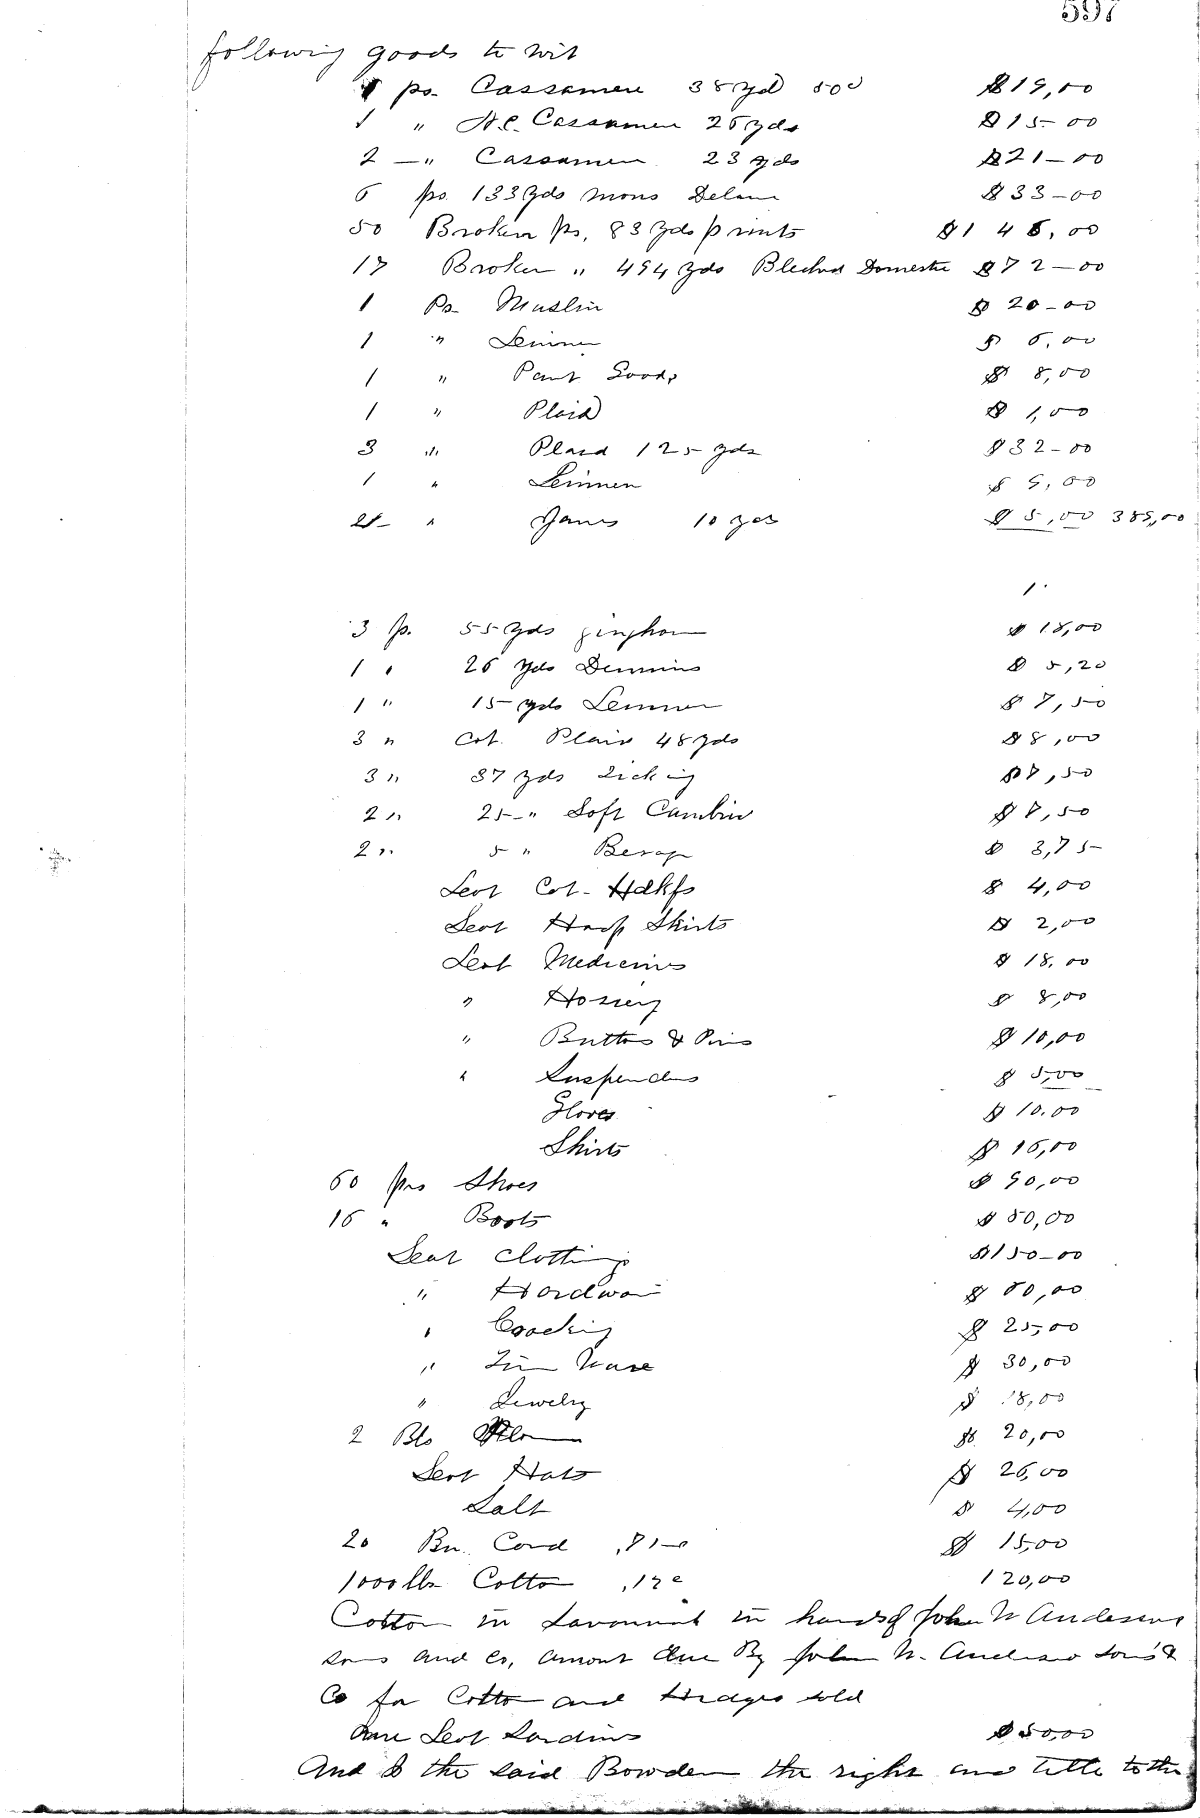 597
following goods to wit
1 ps. Cassamere 38 yd 50c $19,00
1 " Cassamere 26 yds $15-00
2 — " Cassamere 23 yds $21-00
6 ps. 133 yds mous Delane $33-00
50 Broken ps, 83 yds prints $146,00
17 Broken " 494 yds Bleched Domestic $72-00
1 Ps. Muslin $20-00
1 " Leninen $ 6,00
1 " Pant Goods $ 8,00
1 " Plaid $ 1,00
3 " Plaid 125 yds $32-00
1 " Leninen $ 9,00
" Janes 10 yds $ 5,00 385,00
3 p. 55 yds gingham $ 18,00
1 " 26 yds Dennins $ 5,20
1 " 15 yds Lennen $ 7,50
3 " Cot. Plaid 48 yds $8,00
3 " 37 yds Ticking $7,50
2 " 25 " Soft Cambric $ 7,50
2 " 5 " Berage $ 3,75
Leot Cot. Hdkfs $ 4,00
Leot Hoop Skirts $ 2,00
Leot Medicins $ 18.00
" Hosiery $ 8,00
" Buttos & Pins $ 10,00
" Suspenders $ 5,00
Gloves $ 10.00
Shirts $ 16,00
60 prs Shoes $ 90,00
16 " Boots $ 80,00
Leot clotting $150-00
" Hardwar $ 80,00
" Crocking $ 25,00
" Tin Ware $ 30,00
" Jewelry $ 18,00
2 Bls $ 20,00
Leot Hats $ 26,00
Salt $ 4,00
20 Bu. Corn $ 15,00
1000 lbs Cotton ,12c 120,00
Cotton in Savannah in hands of John W Anderson
sons and co, amont due By John W. Anderson Sons &
Co for Cotton and Hedges sold
One Leot Sardins $50,00
And I the said Bowden the right and title to the